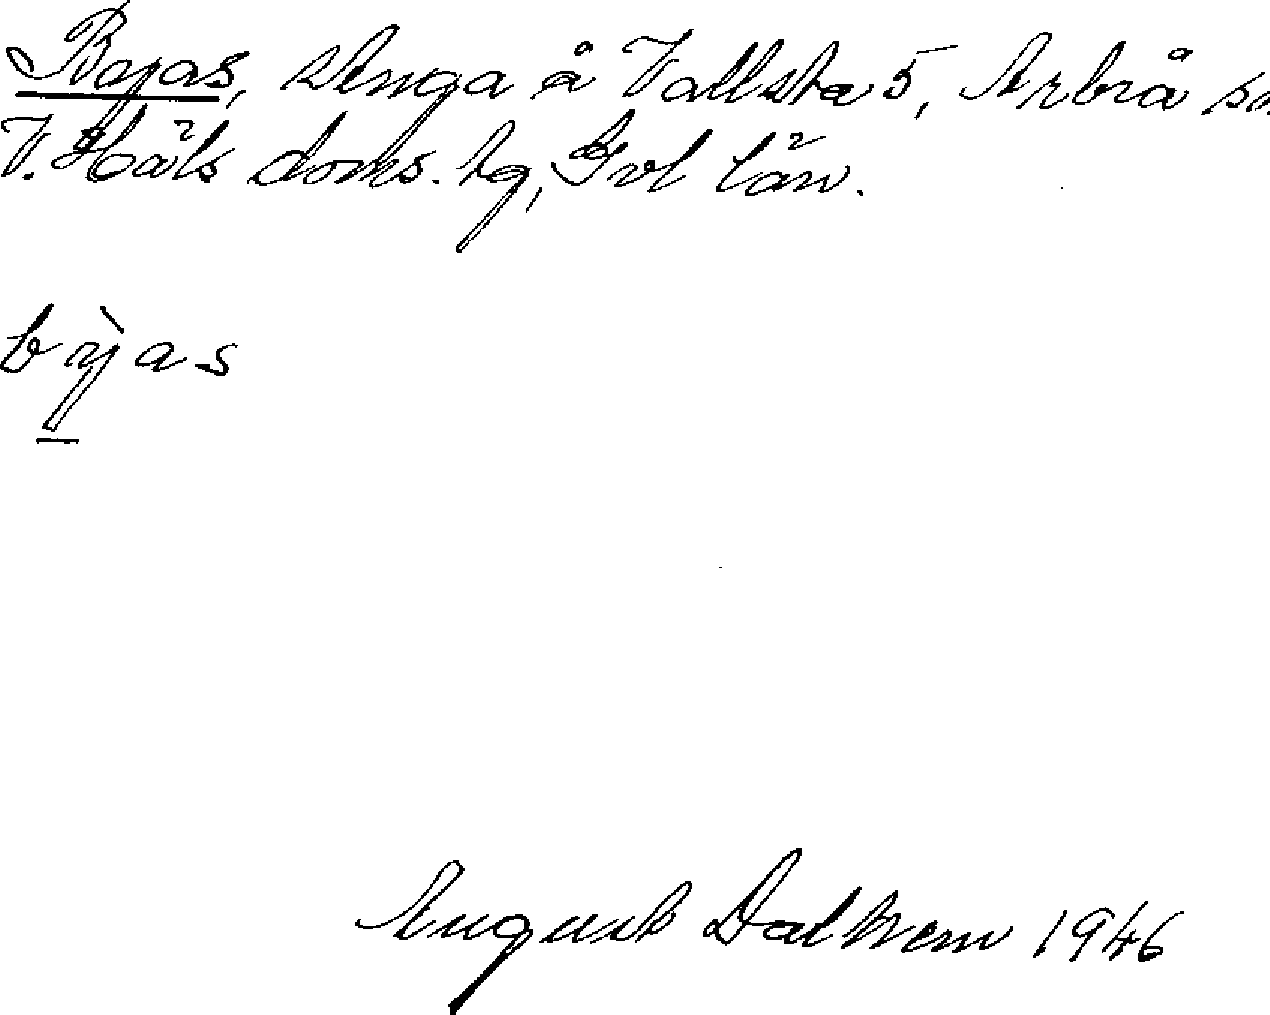 Byas, stuga å Vallsta 5, Arbrå sn.
V. Häls doms. hg, Gvl län.
bỳas
August Dalkvem 1946